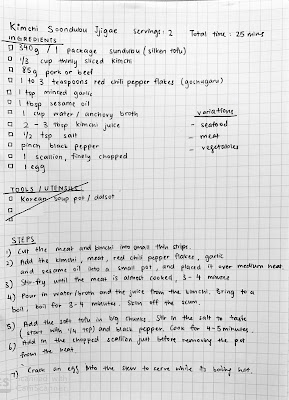 Kimchi Soondubu Jjigae servings: 2 Total time: 25 mins
INGREDIENTS
340g / 1 package sundubu (silken tofu)
1/3 cup thinly sliced kimchi
85g pork or beef
1 to 3 teaspoons red chili pepper flakes (gochugaru)
1 tsp minced garlic
1 tbsp sesame oil
1 cup water / anchovy broth
2 - 3 tbsp kimchi juice
1/2 tsp salt
pinch black pepper
1 scallion, finely chopped
1 egg
variations
- seafood
- meat
- vegetables
TOOLS / UTENSILS
Korean soup pot / dolsot
STEPS
1) Cut the meat and kimchi into small thin strips.
2) Add the kimchi, meat, red chili pepper flakes, garlic
and sesame oil into a small pot, and placed it over medium heat.
3) Stir-fry until the meat is almost cooked, 3 - 4 minutes
4) Pour in water/broth and the juice from the kimchi. Bring to a
boil, boil for 3-4 minutes. Skim off the scum.
5) Add the soft tofu in big chunks. Stir in the salt to taste
(start with 1/4 tsp) and black pepper. Cook for 4-5 minutes.
6) Add in the chopped scallion just before removing the pot
from the heat.
7) Crack an egg into the stew to serve while its boiling hot.
CS